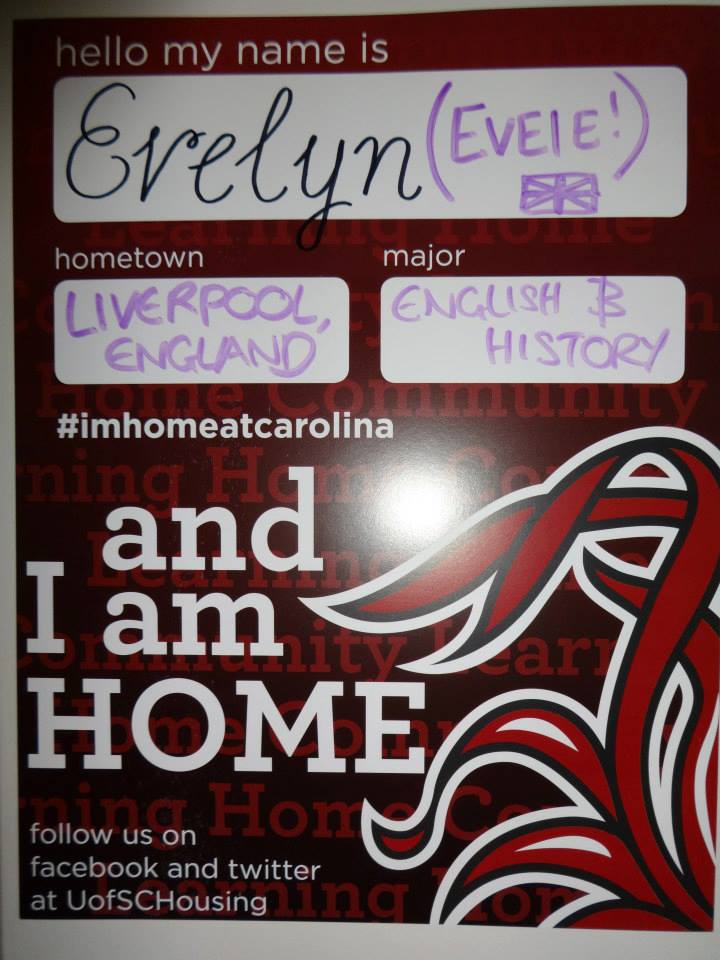 hello my name is
Evelyn (EVEIE!)
hometown
major
LIVERPOOL,
ENGLAND
ENGLISH &
HISTORY
#imhomeatcarolina
and
I am
HOME
follow us on
facebook and twitter
at UofSCHousing